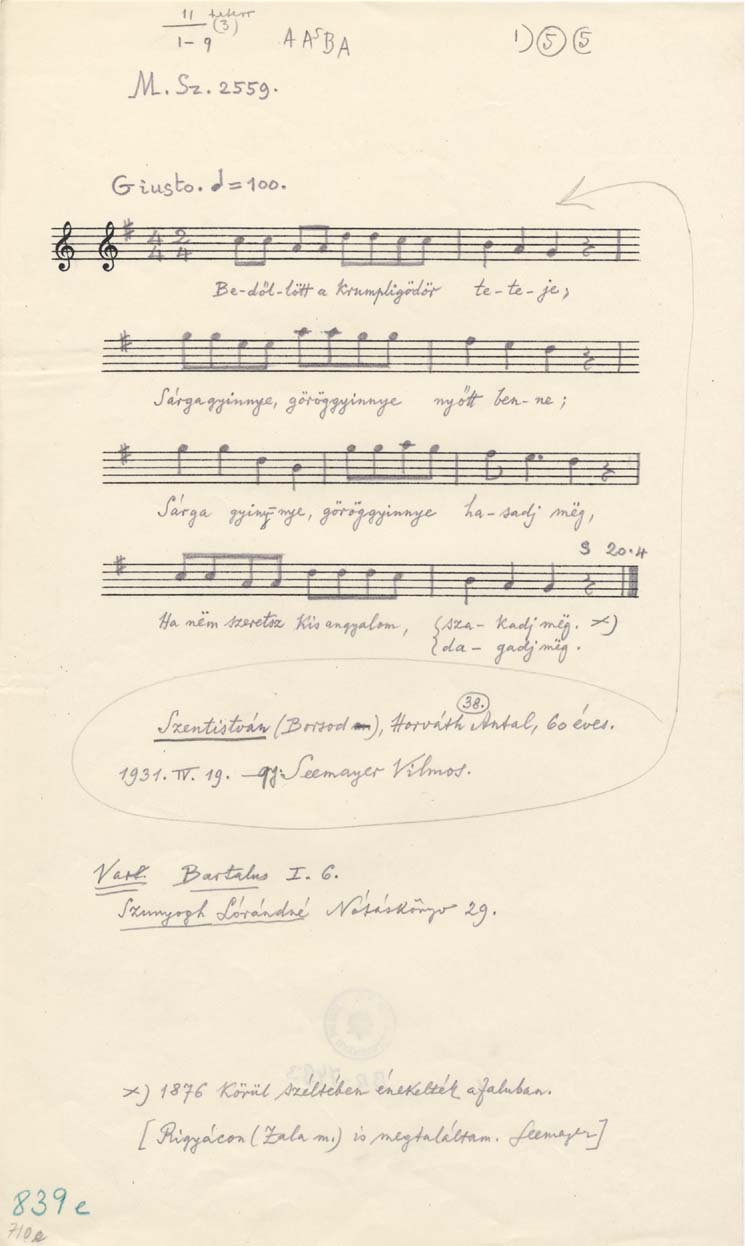 11 (3)
1-9
A A⁵ B A
1) 5 5
M. Sz. 2559.
Giusto. ♩=100.
4 2
4 4
Be-dől-lött a krumpligödör te-te-je;
Sárgagyinnye, göröggyinnye nyőtt ben-ne;
Sárga gyiny-nye, göröggyinnye ha-sadj mëg,
S 20.4
Ha nëm szeretsz kis angyalom, {sza-kadj mëg. x)
{da-gadj mëg.
38.
Szentistván (Borsod), Horváth Antal, 60 éves.
1931. IV. 19. gy: Seemayer Vilmos.
Var. Bartalus I. 6.
Szunyogh Lórándné Nótáskönyv 29.
x) 1876 körül széltében énekelték a faluban.
[Rigyácon (Zala m.) is megtaláltam. Seemayer]
839 e
710 e